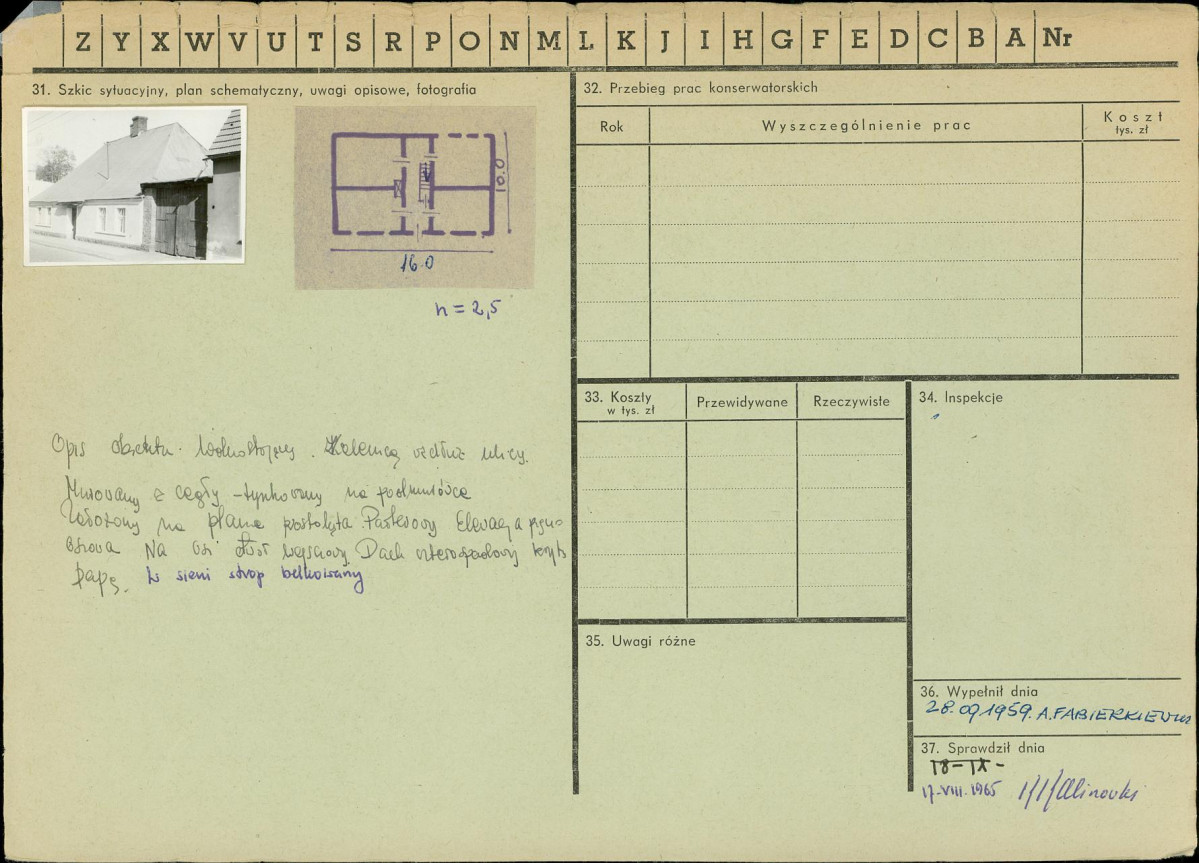 Z Y X W V U T S R P O N M L K J I H G F E D C B A Nr
31. Szkic sytuacyjny, plan schematyczny, uwagi opisowe, fotografia
10.0
16.0
h = 2,5
Opis obiektu. Wolnostojący. Kalenicą wzdłuż ulicy.
Murowany z cegły - tynkowany na podmurówce
Założony na planie prostokąta Parterowy Elewacja
Na osi otwór wejściowy. Dach czterospadowy kryty
papą. W sieni strop belkowany
32. Przebieg prac konserwatorskich
Rok Wyszczególnienie prac Koszt
tys. zł
33. Koszty
w tys. zł
Przewidywane Rzeczywiste
34. Inspekcje
35. Uwagi różne
36. Wypełnił dnia
28.09.1959. A.FABIERKIEWICZ
37. Sprawdził dnia
18-IX-
17-VIII.1965